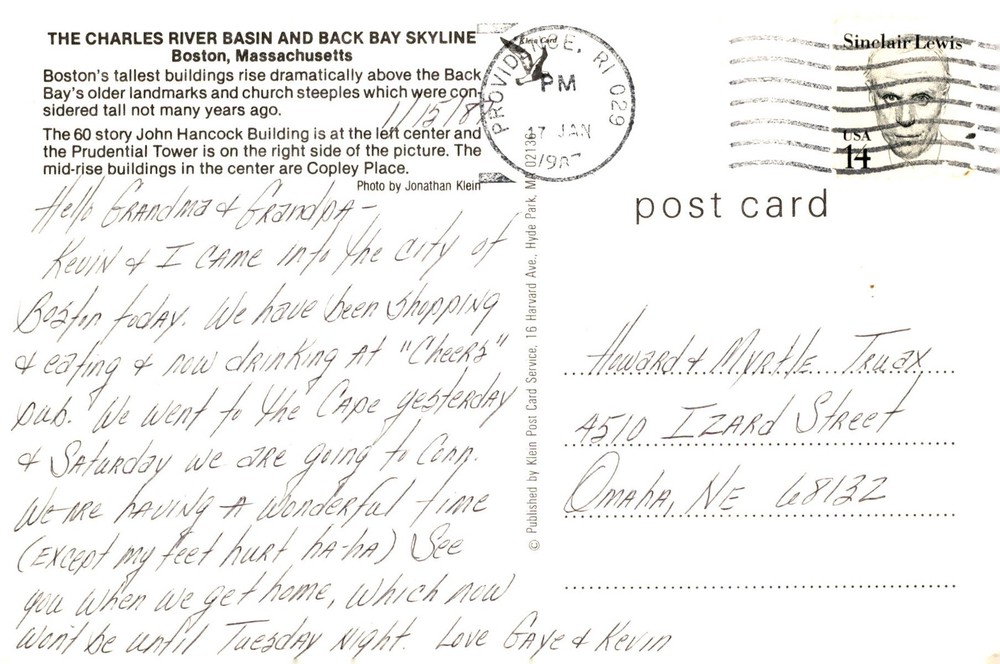 THE CHARLES RIVER BASIN AND BACK BAY SKYLINE
Boston, Massachusetts
Boston's tallest buildings rise dramatically above the Back
Bay's older landmarks and church steeples which were con-
sidered tall not many years ago.
1/15/8
The 60 story John Hancock Building is at the left center and
the Prudential Tower is on the right side of the picture. The
mid-rise buildings in the center are Copley Place.
Photo by Jonathan Klein
Hello Grandma & Grandpa-
Kevin & I came into the city of
Boston today. We have been shopping
& eating & now drinking at "Cheers"
pub. We went to the Cape yesterday
& Saturday we are going to Conn.
We are having a wonderful time
(except my feet hurt ha-ha) See
you when we get home, which now
won't be until Tuesday night. Love Gaye & Kevin
Klein Card
PROVIDENCE, RI 029
PM
17 JAN
1987
© Published by Klein Post Card Service, 16 Harvard Ave., Hyde Park, MA 02136
Sinclair Lewis
USA
14
post card
Howard & Myrtle Truax
4510 Izard Street
Omaha, NE 68132